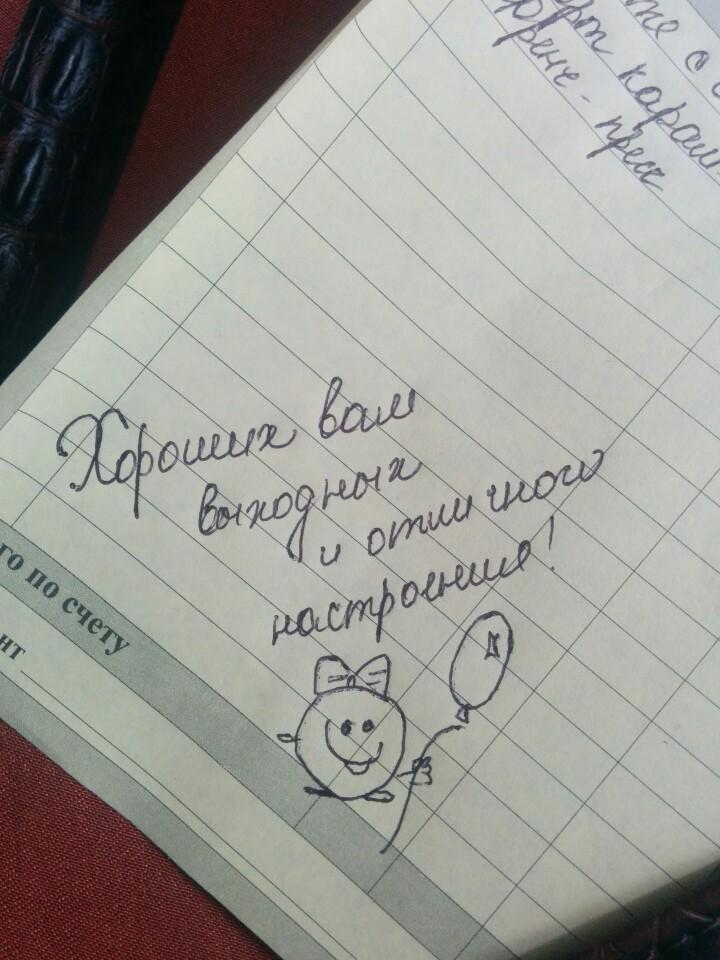 те с
карам
френч-пресс
Хороших вам
выходных
и отличного
настроения!
го по счету
нт